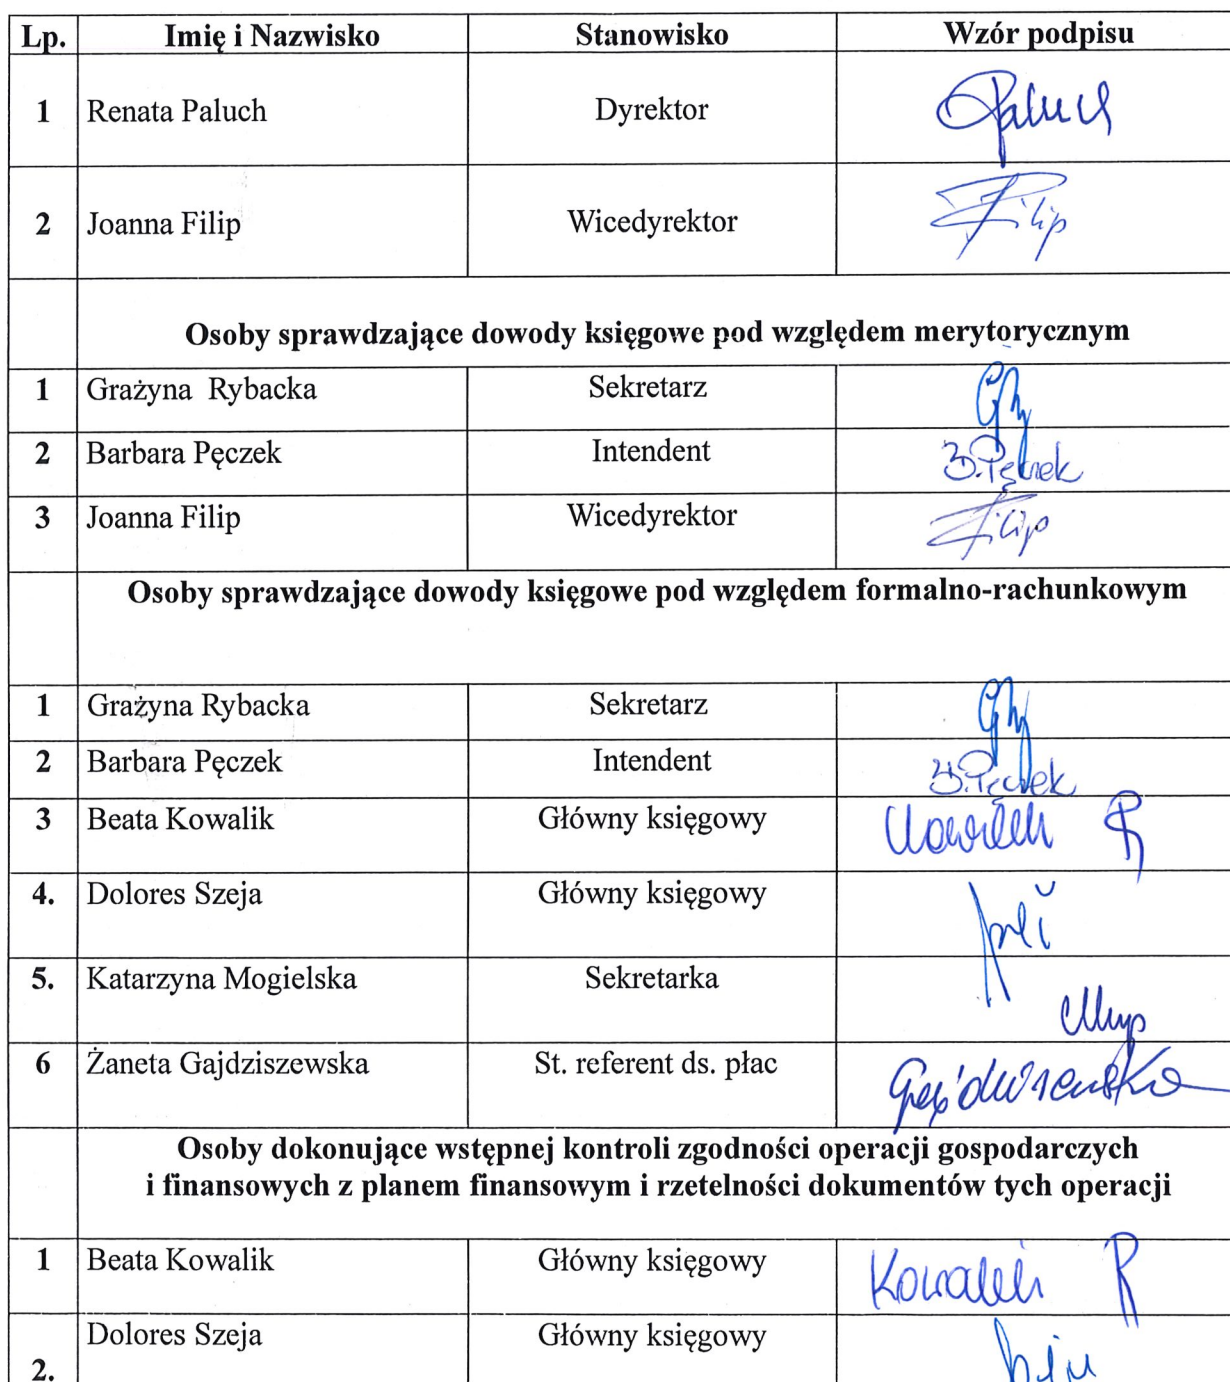 Lp. Imię i Nazwisko Stanowisko Wzór podpisu
1 Renata Paluch Dyrektor Paluch
2 Joanna Filip Wicedyrektor Filip
Osoby sprawdzające dowody księgowe pod względem merytorycznym
1 Grażyna Rybacka Sekretarz
2 Barbara Pęczek Intendent B.Pęczek
3 Joanna Filip Wicedyrektor Filip
Osoby sprawdzające dowody księgowe pod względem formalno-rachunkowym
1 Grażyna Rybacka Sekretarz
2 Barbara Pęczek Intendent B.Pęczek
3 Beata Kowalik Główny księgowy Kowalik B
4. Dolores Szeja Główny księgowy
5. Katarzyna Mogielska Sekretarka
6 Żaneta Gajdziszewska St. referent ds. płac
Osoby dokonujące wstępnej kontroli zgodności operacji gospodarczych
i finansowych z planem finansowym i rzetelności dokumentów tych operacji
1 Beata Kowalik Główny księgowy Kowalik B
2. Dolores Szeja Główny księgowy